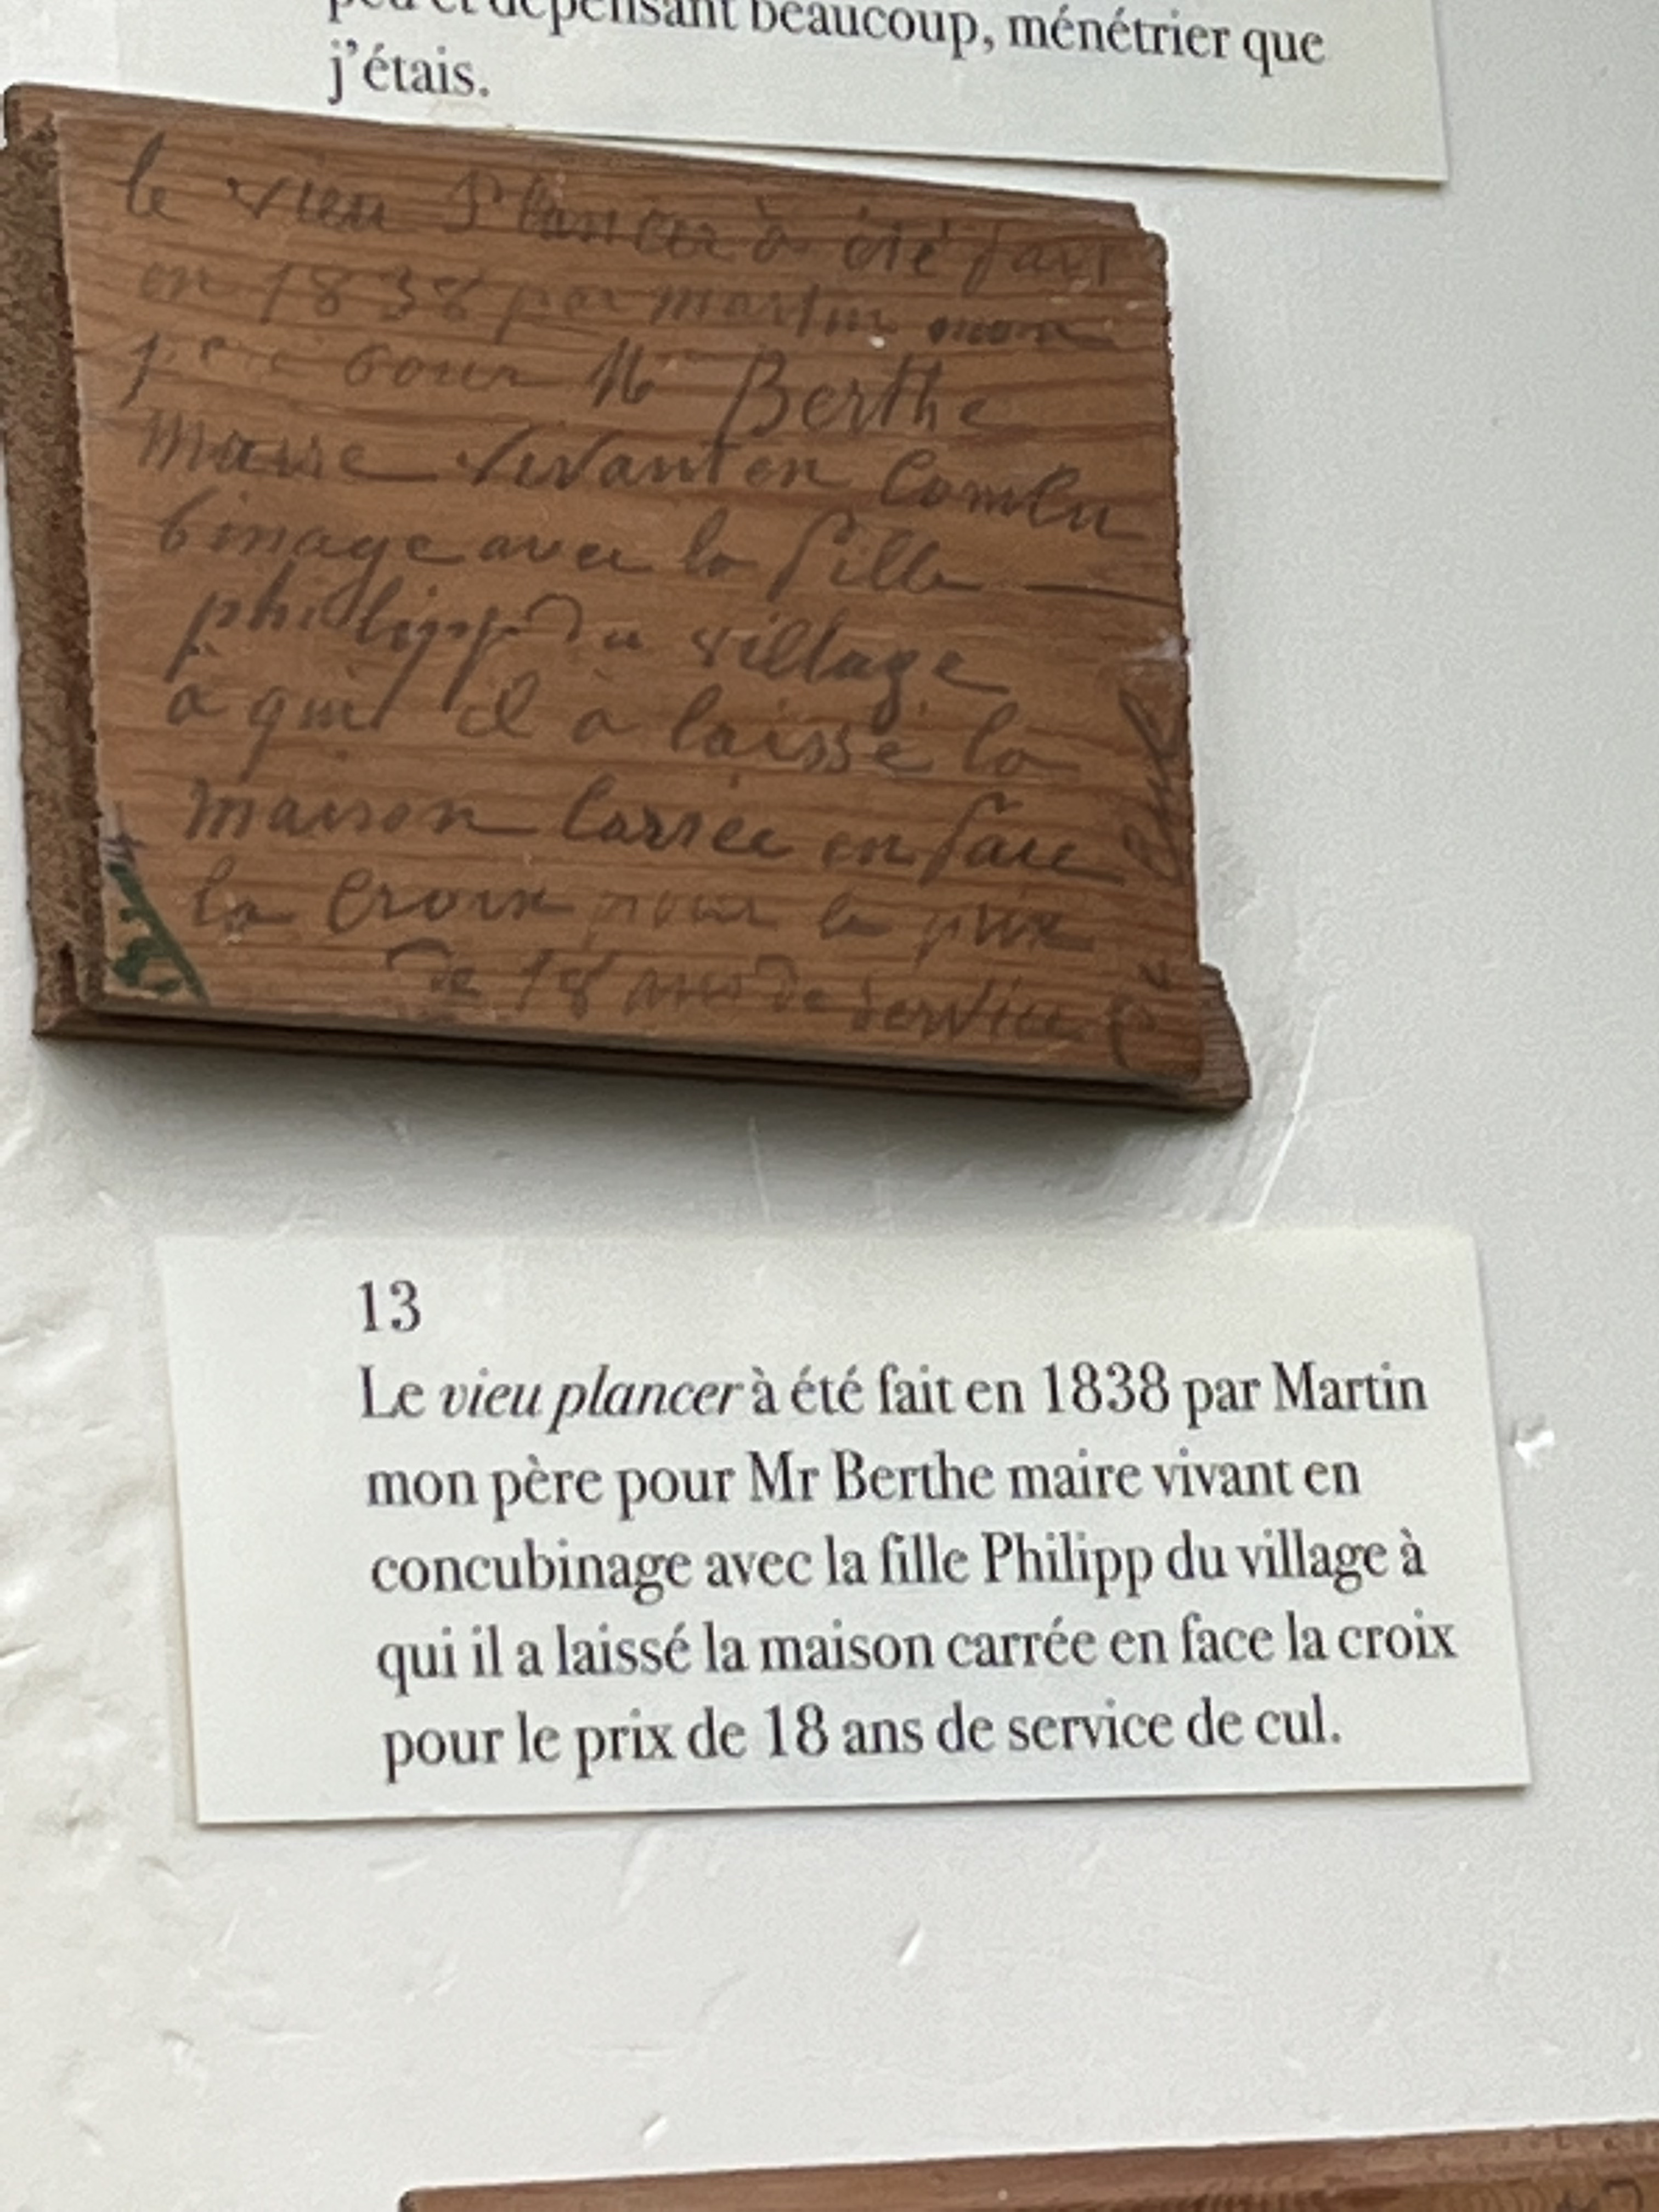 peu et dépensant beaucoup, ménétrier que
j'étais.
le vieu Plancer à été fait
en 1838 par martin mon
père pour Mr Berthe
maire vivant en Concu
binage avec la fille
philipp du village
a qui il à laissé la
maison Carrée en face
la Croix pour le prix
de 18 ans de service de
cul
13
Le vieu plancer à été fait en 1838 par Martin
mon père pour Mr Berthe maire vivant en
concubinage avec la fille Philipp du village à
qui il a laissé la maison carrée en face la croix
pour le prix de 18 ans de service de cul.